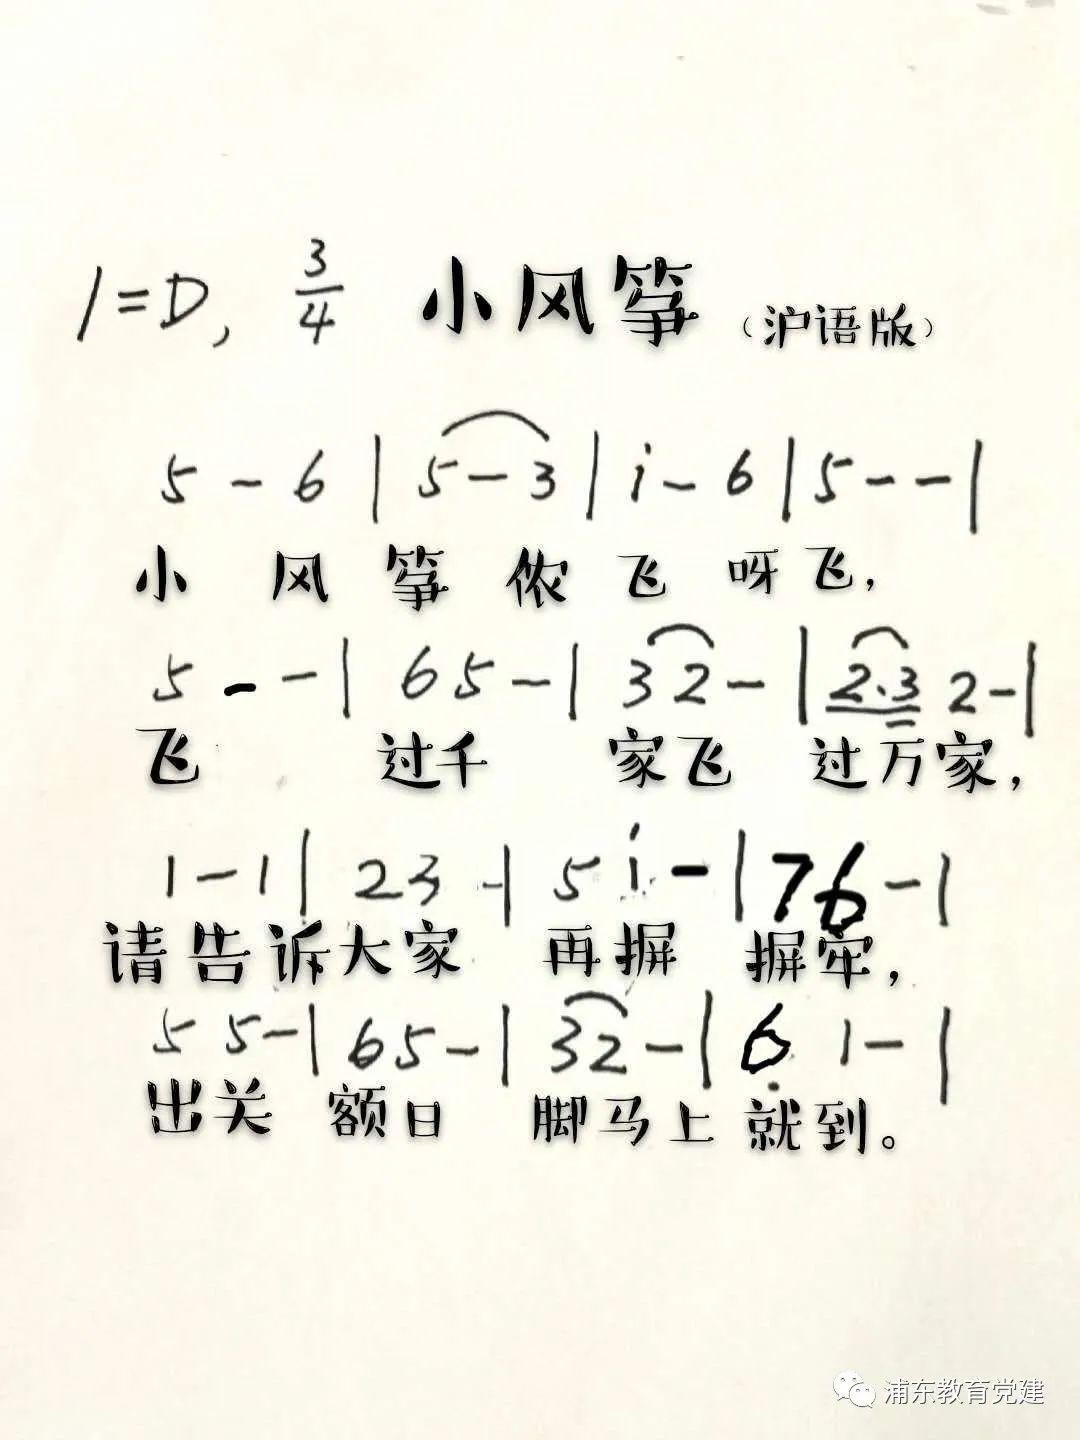 1=D, 3/4 小风筝（沪语版）
5 - 6 | 5 - 3 | i - 6 | 5 - - |
小 风 筝 侬 飞 呀 飞，
5 - - | 6 5 - | 3 2 - | 2. 3 2 - |
飞 过千 家飞 过万家，
1 - 1 | 2 3 - | 5 i - | 7 6 - |
请告诉大家 再摒 摒牢，
5 5 - | 6 5 - | 3 2 - | 6̣ 1 - |
出关 额日 脚马上 就到。
浦东教育党建